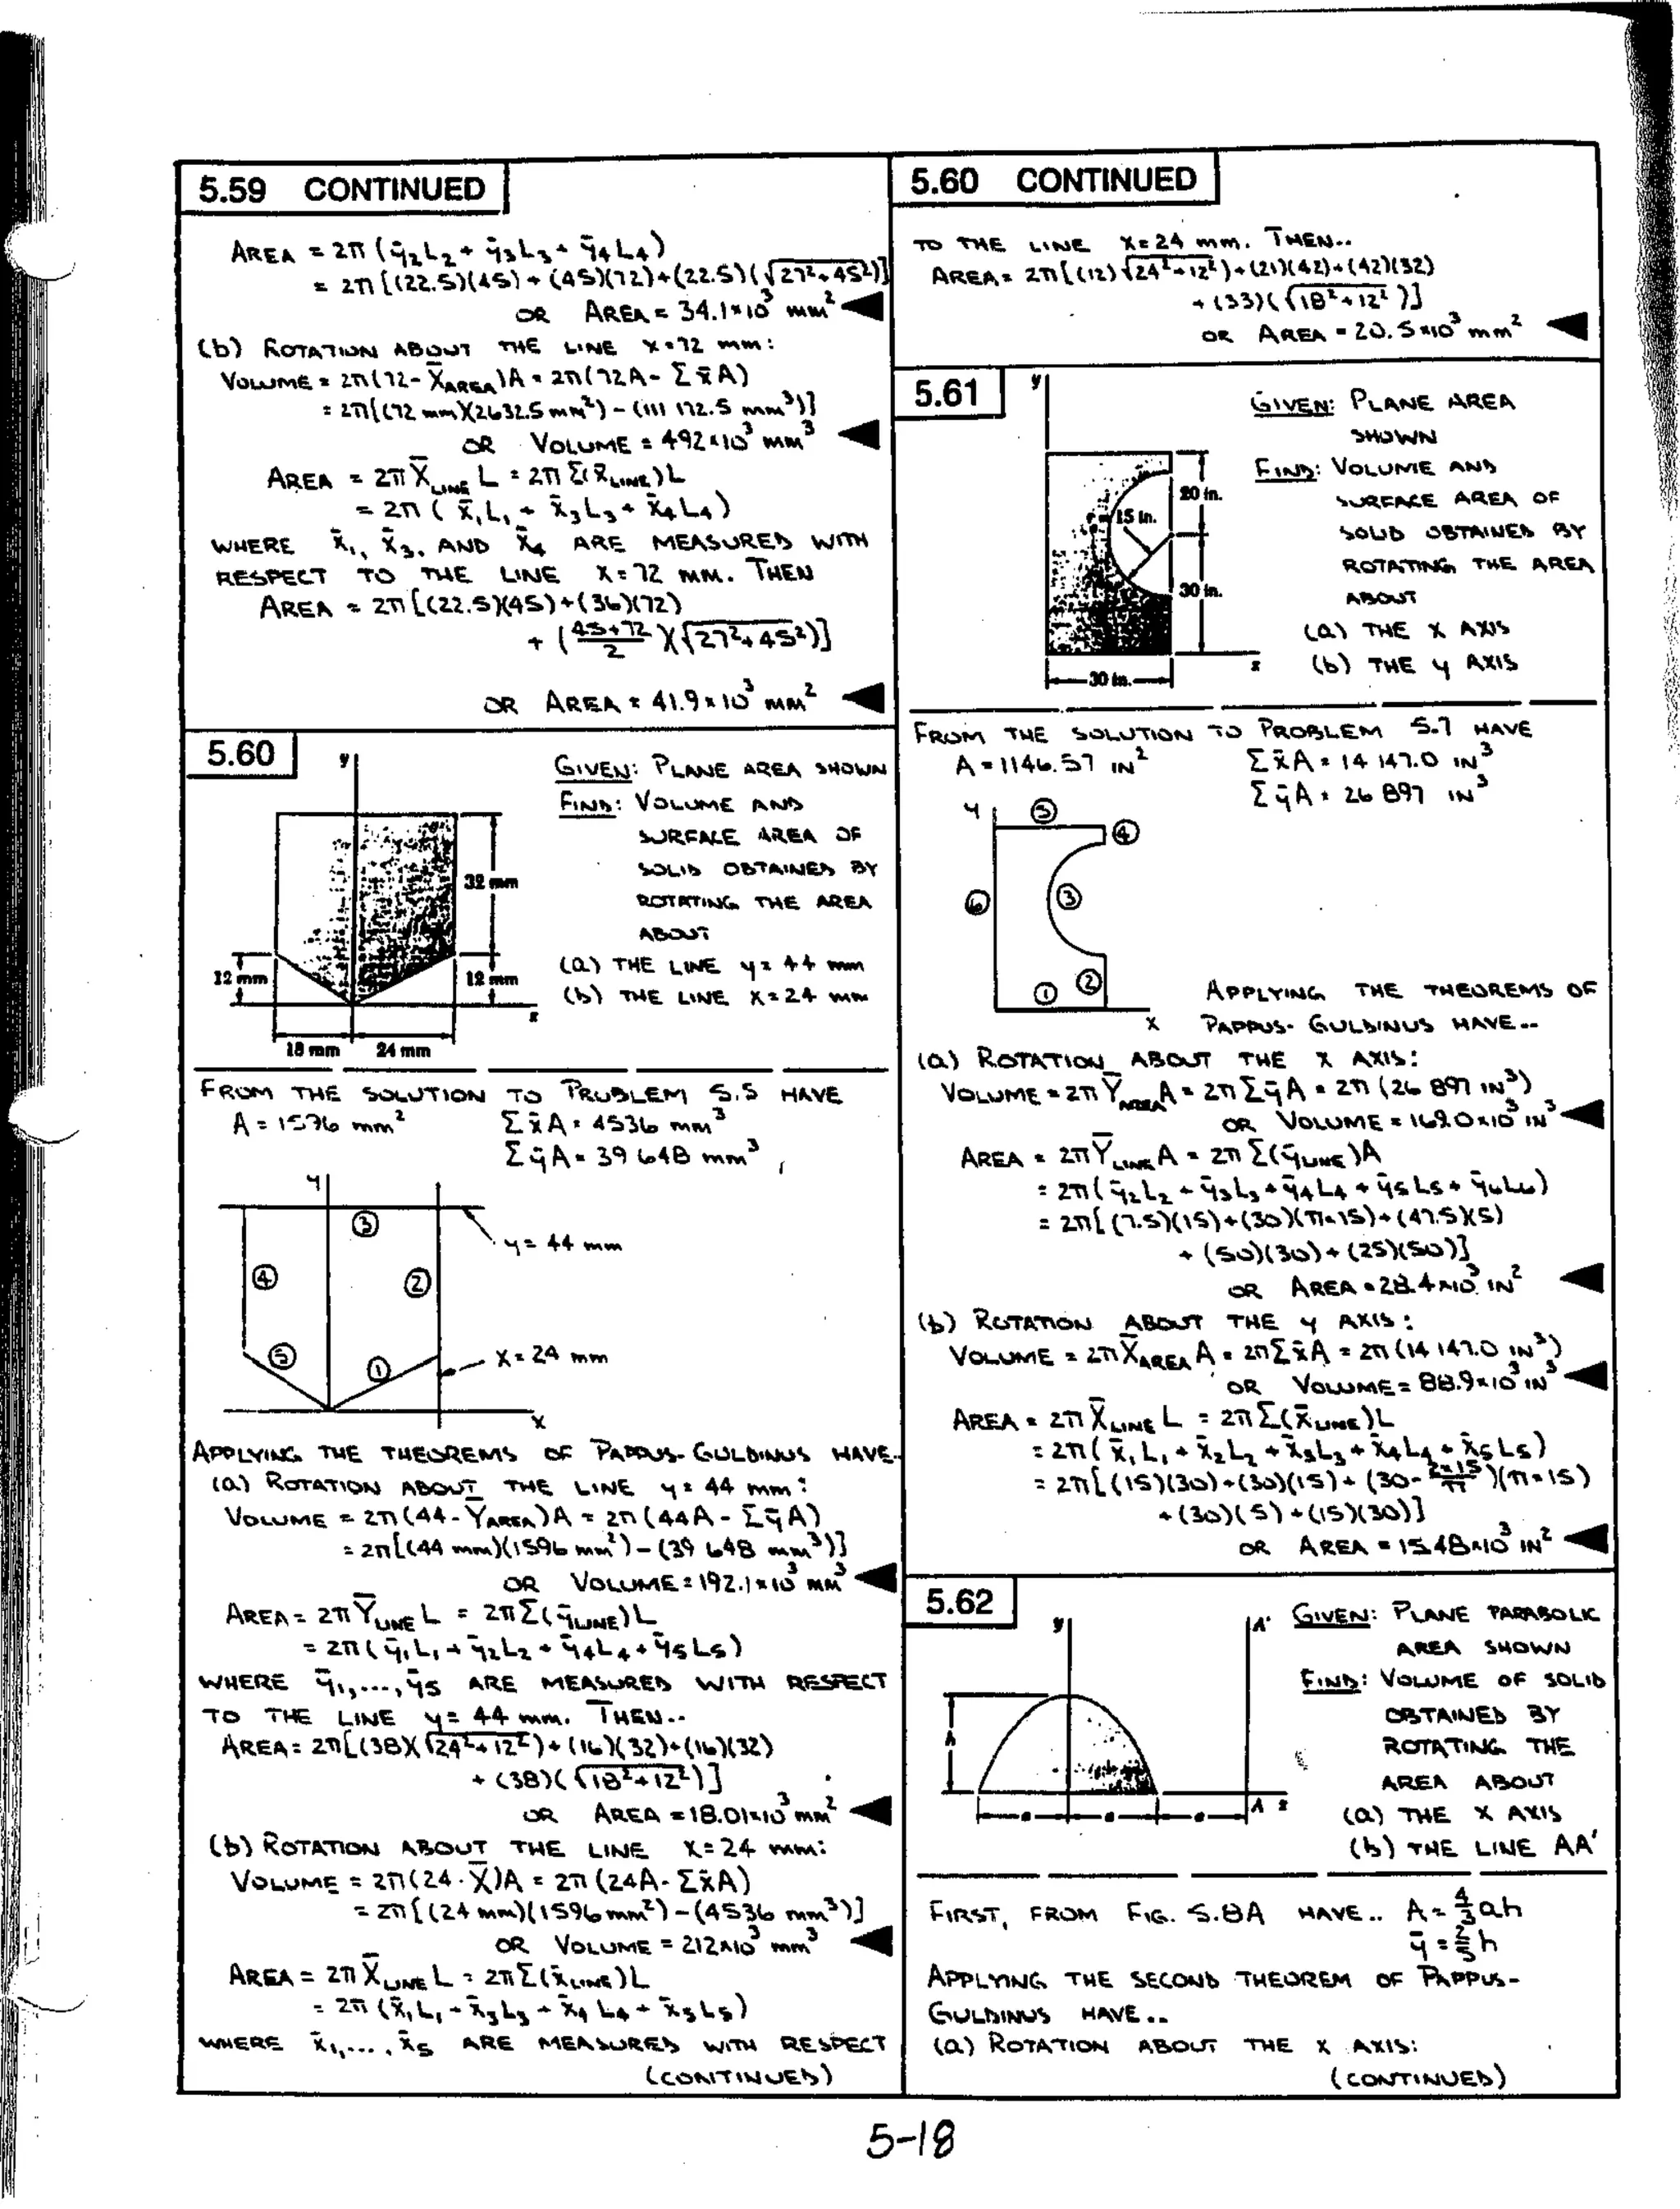 5.59 CONTINUED
AREA = 2π (ȳ₂L₂ + ȳ₃L₃ + ȳ₄L₄)
= 2π [(22.5)(45) + (45)(72) + (22.5)(√(27² + 45²))]
OR AREA = 34.1×10³ mm² ◀
(b) ROTATION ABOUT THE LINE X=72 mm:
VOLUME = 2π(72- X̄AREA)A = 2π(72A- Σx̄A)
= 2π[(72 mm)(2632.5 mm²) - (111 172.5 mm³)]
OR VOLUME = 492×10³ mm³ ◀
AREA = 2π X̄LINE L = 2π Σ(x̄LINE)L
= 2π ( x̄₁L₁ + x̄₃L₃ + x̄₄L₄)
WHERE x̄₁, x̄₃, AND x̄₄ ARE MEASURED WITH
RESPECT TO THE LINE X=72 MM. THEN
AREA = 2π [(22.5)(45) + (36)(72)
+ ((45+72)/2)(√(27²+45²))]
OR AREA = 41.9×10³ mm² ◀
5.60
y
32 mm
12 mm
12 mm
x
18 mm 24 mm
GIVEN: PLANE AREA SHOWN
FIND: VOLUME AND
SURFACE AREA OF
SOLID OBTAINED BY
ROTATING THE AREA
ABOUT
(a) THE LINE y = 44 mm
(b) THE LINE X = 24 mm
FROM THE SOLUTION TO PROBLEM 5.5 HAVE
A = 1596 mm² Σx̄A = 4536 mm³
ΣȳA = 39 648 mm³
y
③
y = 44 mm
④
②
⑤
①
X = 24 mm
X
APPLYING THE THEOREMS OF PAPPUS-GULDINUS HAVE..
(a) ROTATION ABOUT THE LINE y = 44 mm:
VOLUME = 2π(44-ȲAREA)A = 2π(44A - ΣȳA)
= 2π[(44 mm)(1596 mm²) - (39 648 mm³)]
OR VOLUME = 192.1×10³ mm³ ◀
AREA = 2πȲLINE L = 2πΣ(ȳLINE)L
= 2π(ȳ₁L₁ + ȳ₂L₂ + ȳ₄L₄ + ȳ₅L₅)
WHERE ȳ₁,...,ȳ₅ ARE MEASURED WITH RESPECT
TO THE LINE y = 44 mm. THEN..
AREA = 2π[(38)(√(24²+12²)) + (16)(32) + (16)(32)
+ (38)(√(18²+12²))]
OR AREA = 18.01×10³ mm² ◀
(b) ROTATION ABOUT THE LINE X = 24 mm:
VOLUME = 2π(24-X̄)A = 2π (24A - Σx̄A)
= 2π [(24 mm)(1596 mm²) - (4536 mm³)]
OR VOLUME = 212×10³ mm³ ◀
AREA = 2π X̄LINE L = 2πΣ(x̄LINE)L
= 2π (x̄₁L₁ + x̄₃L₃ + x̄₄L₄ + x̄₅L₅)
WHERE x̄₁,..., x̄₅ ARE MEASURED WITH RESPECT
(CONTINUED)
5.60 CONTINUED
TO THE LINE X = 24 mm. THEN..
AREA = 2π[(12)(√(24²+12²)) + (21)(42) + (42)(32)
+ (33)(√(18²+12²))]
OR AREA = 20.5×10³ mm² ◀
5.61
y
20 in.
r = 15 in.
30 in.
x
30 in.
GIVEN: PLANE AREA
SHOWN
FIND: VOLUME AND
SURFACE AREA OF
SOLID OBTAINED BY
ROTATING THE AREA
ABOUT
(a) THE X AXIS
(b) THE y AXIS
FROM THE SOLUTION TO PROBLEM 5.7 HAVE
A = 1146.57 IN² Σx̄A = 14 147.0 IN³
ΣȳA = 26 897 IN³
y
⑤
④
⑥
③
①
②
X
APPLYING THE THEOREMS OF
PAPPUS-GULDINUS HAVE..
(a) ROTATION ABOUT THE X AXIS:
VOLUME = 2πȲAREA A = 2πΣȳA = 2π (26 897 IN³)
OR VOLUME = 169.0×10³ IN³ ◀
AREA = 2πȲLINE A = 2π Σ(ȳLINE)A
= 2π(ȳ₂L₂ + ȳ₃L₃ + ȳ₄L₄ + ȳ₅L₅ + ȳ₆L₆)
= 2π[(7.5)(15) + (30)(π×15) + (47.5)(5)
+ (50)(30) + (25)(50)]
OR AREA = 28.4×10³ IN² ◀
(b) ROTATION ABOUT THE y AXIS:
VOLUME = 2πX̄AREA A = 2πΣx̄A = 2π(14 147.0 IN³)
OR VOLUME = 88.9×10³ IN³ ◀
AREA = 2πX̄LINE L = 2πΣ(x̄LINE)L
= 2π( x̄₁L₁ + x̄₂L₂ + x̄₃L₃ + x̄₄L₄ + x̄₅L₅)
= 2π[(15)(30) + (30)(15) + (30 - (2×15)/π)(π×15)
+ (30)(5) + (15)(30)]
OR AREA = 15.48×10³ IN² ◀
5.62
y
A'
h
a a a
A x
GIVEN: PLANE PARABOLIC
AREA SHOWN
FIND: VOLUME OF SOLID
OBTAINED BY
ROTATING THE
AREA ABOUT
(a) THE X AXIS
(b) THE LINE AA'
FIRST, FROM FIG. 5.8A HAVE.. A = 4/3 ah
ȳ = 2/5 h
APPLYING THE SECOND THEOREM OF PAPPUS-
GULDINUS HAVE..
(a) ROTATION ABOUT THE X AXIS:
(CONTINUED)
5-18